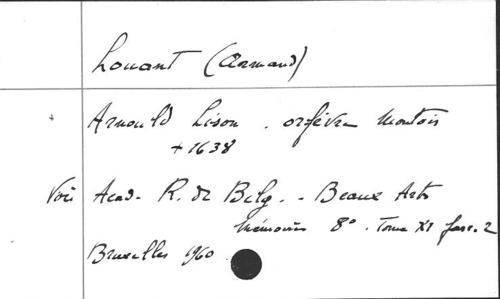 Louant (Armand)
Arnould Lison . orfèvre Montois
+ 1638
Voir Acad. R. de Belg. - Beaux Arts
Mémoires 8° . Tome XI fasc. 2
Bruxelles 1960